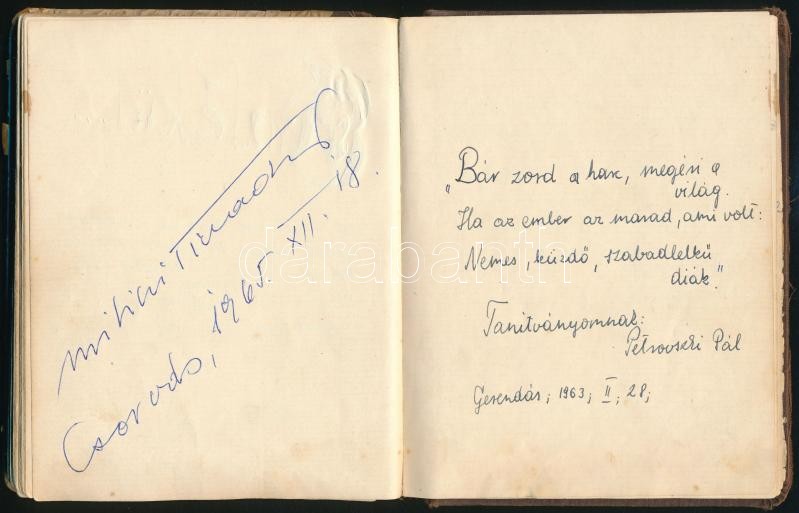 Csorvás, 1965. XII. 18.
"Bár zord a harc, megéri a
világ.
Ha az ember az marad, ami volt:
Nemes, küzdő, szabadlelkű
diák."
Tanítványomnak:
Petrovszki Pál
Gerendás; 1963; II; 28;
darabanth